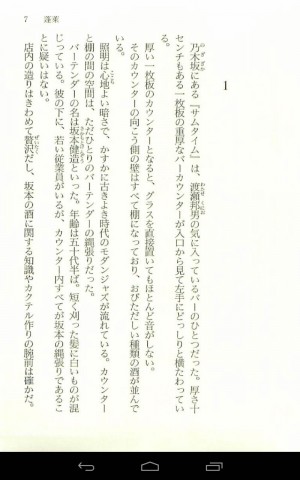 7 蓬莱
1
乃木坂にある『サムタイム』は、渡瀬邦男の気に入っているバーのひとつだった。厚さ十
センチもある一枚板の重厚なバーカウンターが入口から見て左手にどっしりと横たわってい
る。
厚い一枚板のカウンターとなると、グラスを直接置いてもほとんど音がしない。
そのカウンターの向こう側の壁はすべて棚になっており、おびただしい種類の酒が並んで
いる。
照明は心地よい暗さで、かすかに古きよき時代のモダンジャズが流れている。カウンター
と棚の間の空間は、ただひとりのバーテンダーの縄張りだった。
バーテンダーの名は坂本健造といった。年齢は五十代半ば。短く刈った髪に白いものが混
じっている。彼の下に、若い従業員がいるが、カウンター内すべてが坂本の縄張りであるこ
とに疑いはない。
店内の造りはきわめて贅沢だし、坂本の酒に関する知識やカクテル作りの腕前は確かだ。